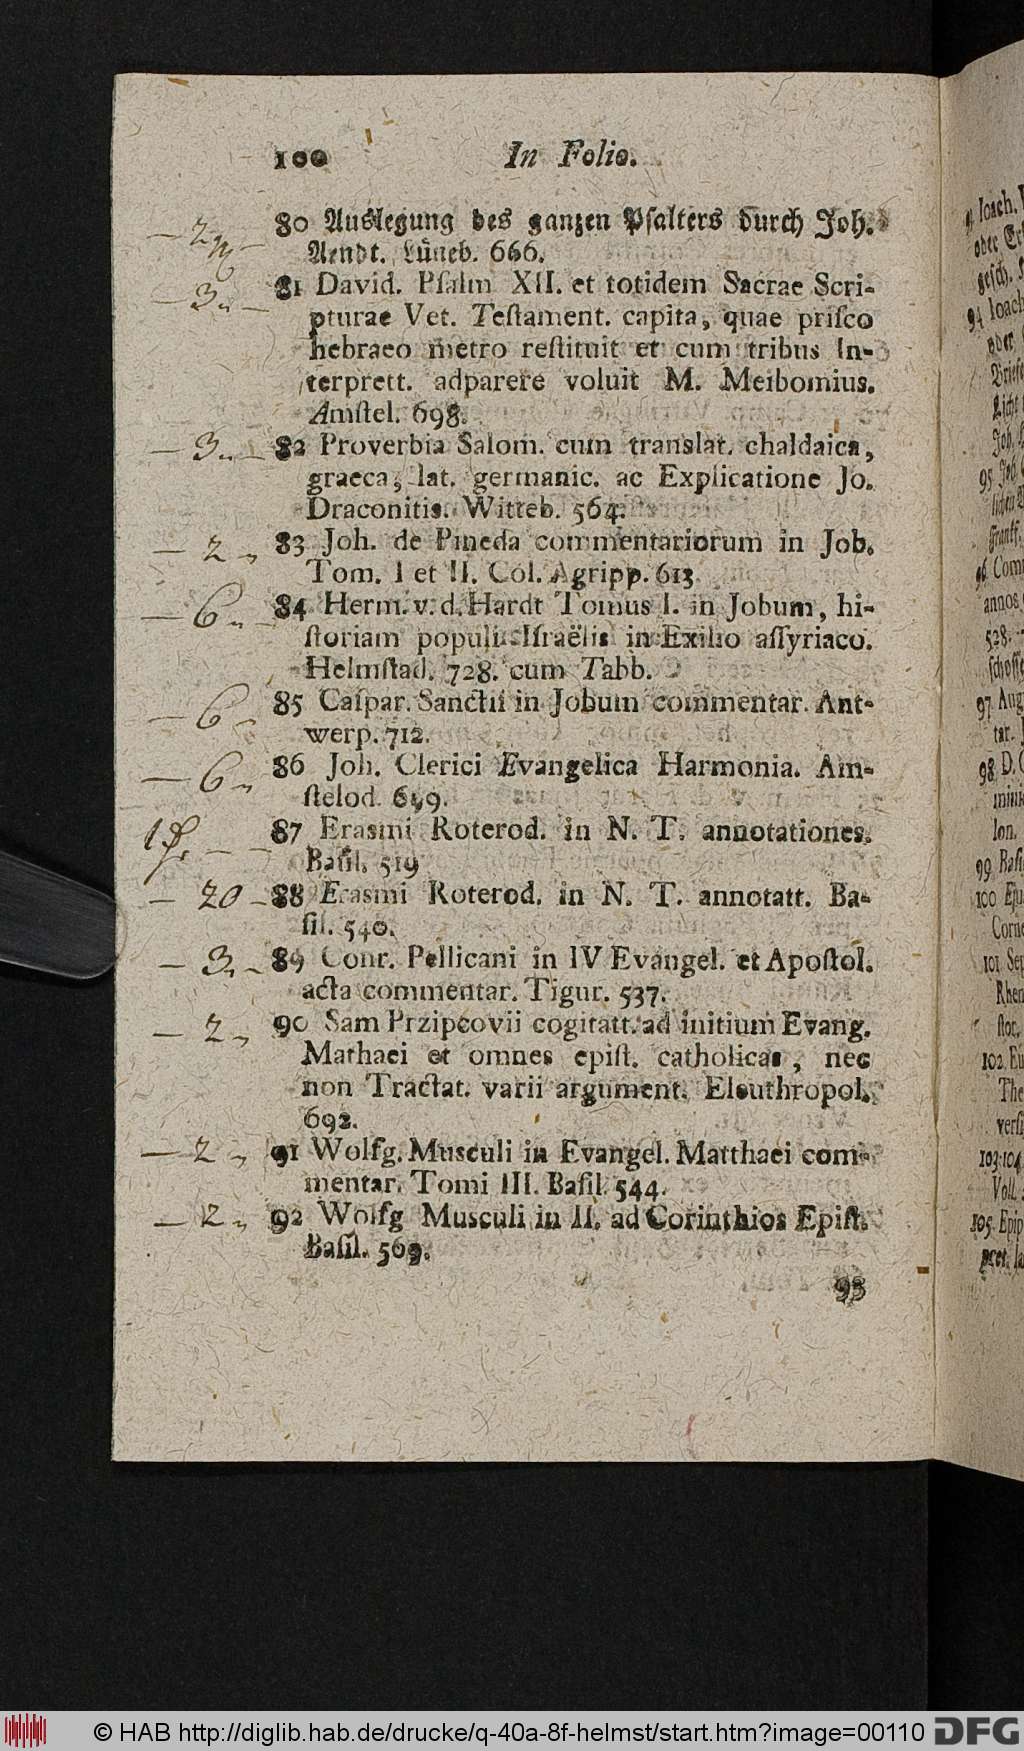 100 In Folio.
— 2 — 80 Auslegung des ganzen Psalters durch Joh.
Arndt. Lüneb. 666.
— 3 „ — 81 David. Pſalm XII. et totidem Sacrae Scri-
pturae Vet. Teſtament. capita, quae priſco
hebraeo metro reſtituit et cum tribus In-
terprett. adparere voluit M. Meibomius.
Amſtel. 698.
— 3 „ — 82 Proverbia Salom. cum translat. chaldaica,
graeca, lat. germanic. ac Explicatione Jo.
Draconitis. Witteb. 564.
— 2 „ 83 Joh. de Pineda commentariorum in Job.
Tom. I et II. Col. Agripp. 613
— 6 „ — 84 Herm. v. d. Hardt Tomus I. in Jobum, hi-
ſtoriam populi Iſraëlis in Exilio aſſyriaco.
Helmſtad. 728. cum Tabb.
— 6 „ 85 Caſpar. Sanctii in Jobum commentar. Ant-
werp. 712.
— 6 „ 86 Joh. Clerici Evangelica Harmonia. Am-
ſtelod. 699.
1 — — 87 Erasmi Roterod. in N. T. annotationes.
Baſil. 519
— 20 — 88 Erasmi Roterod. in N. T. annotatt. Ba-
ſil. 540.
— 3 „ — 89 Conr. Pellicani in IV Evangel. et Apoſtol.
acta commentar. Tigur. 537.
— 2 „ 90 Sam Przipcovii cogitatt. ad initium Evang.
Mathaei et omnes epiſt. catholicas, nec
non Tractat. varii argument. Eleuthropol.
692.
— 2 „ 91 Wolfg. Musculi in Evangel. Matthaei com-
mentar. Tomi III. Baſil. 544.
— 2 „ 92 Wolfg Musculi in II. ad Corinthios Epiſt.
Baſil. 569.
93
Joach.
94 Joach
oder
Joh.
95 Job
96 Com
annos
528.
97 Aug
tar.
98 D.
lon.
99 Baſi
100 Eju
Corne
101 Sep
Rhen
ſtoc.
102 Eu
The
verſi
103.104
Voll.
105. Epip
pret. la
© HAB http://diglib.hab.de/drucke/q-40a-8f-helmst/start.htm?image=00110 DFG